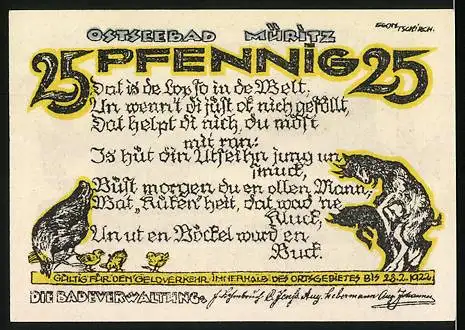 OSTSEEBAD MÜRITZ
EGON TSCHIRCH.
25 PFENNIG 25
Dat is de Lop so in de Welt,
Un wenn't di just ok nich geföllt,
Dat helpt di nich, du möst
mit ran:
Is hüt din Utseihn jung un
smuck,
Büst morgen du en ollen Mann;
Wat "Küken" heit, dat ward 'ne
Kluck,
Un ut en Böckel ward en
Buck.
GÜLTIG FÜR DEN GELDVERKEHR INNERHALB DES ORTSGEBIETES BIS 28.2.1922.
DIE BADEVERWALTUNG: